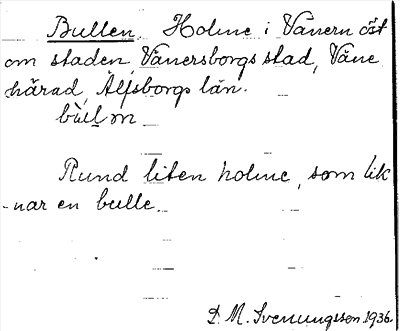 Bullen. Holme i Vänern öst
om staden, Vänersborgs stad, Väne
härad, Älfsborgs län.
bùll̲m
Rund liten holme, som lik-
nar en bulle.
D. M. Svenungsson 1936.